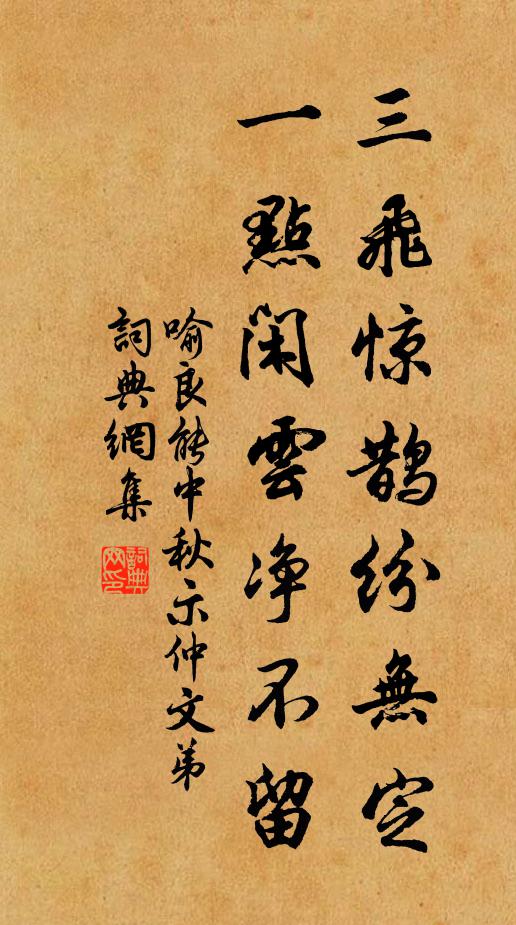 三飛惊鵲紛無定
一點閑雲净不留
喻良能中秋示仲文弟
詞典網集
詞典
网印